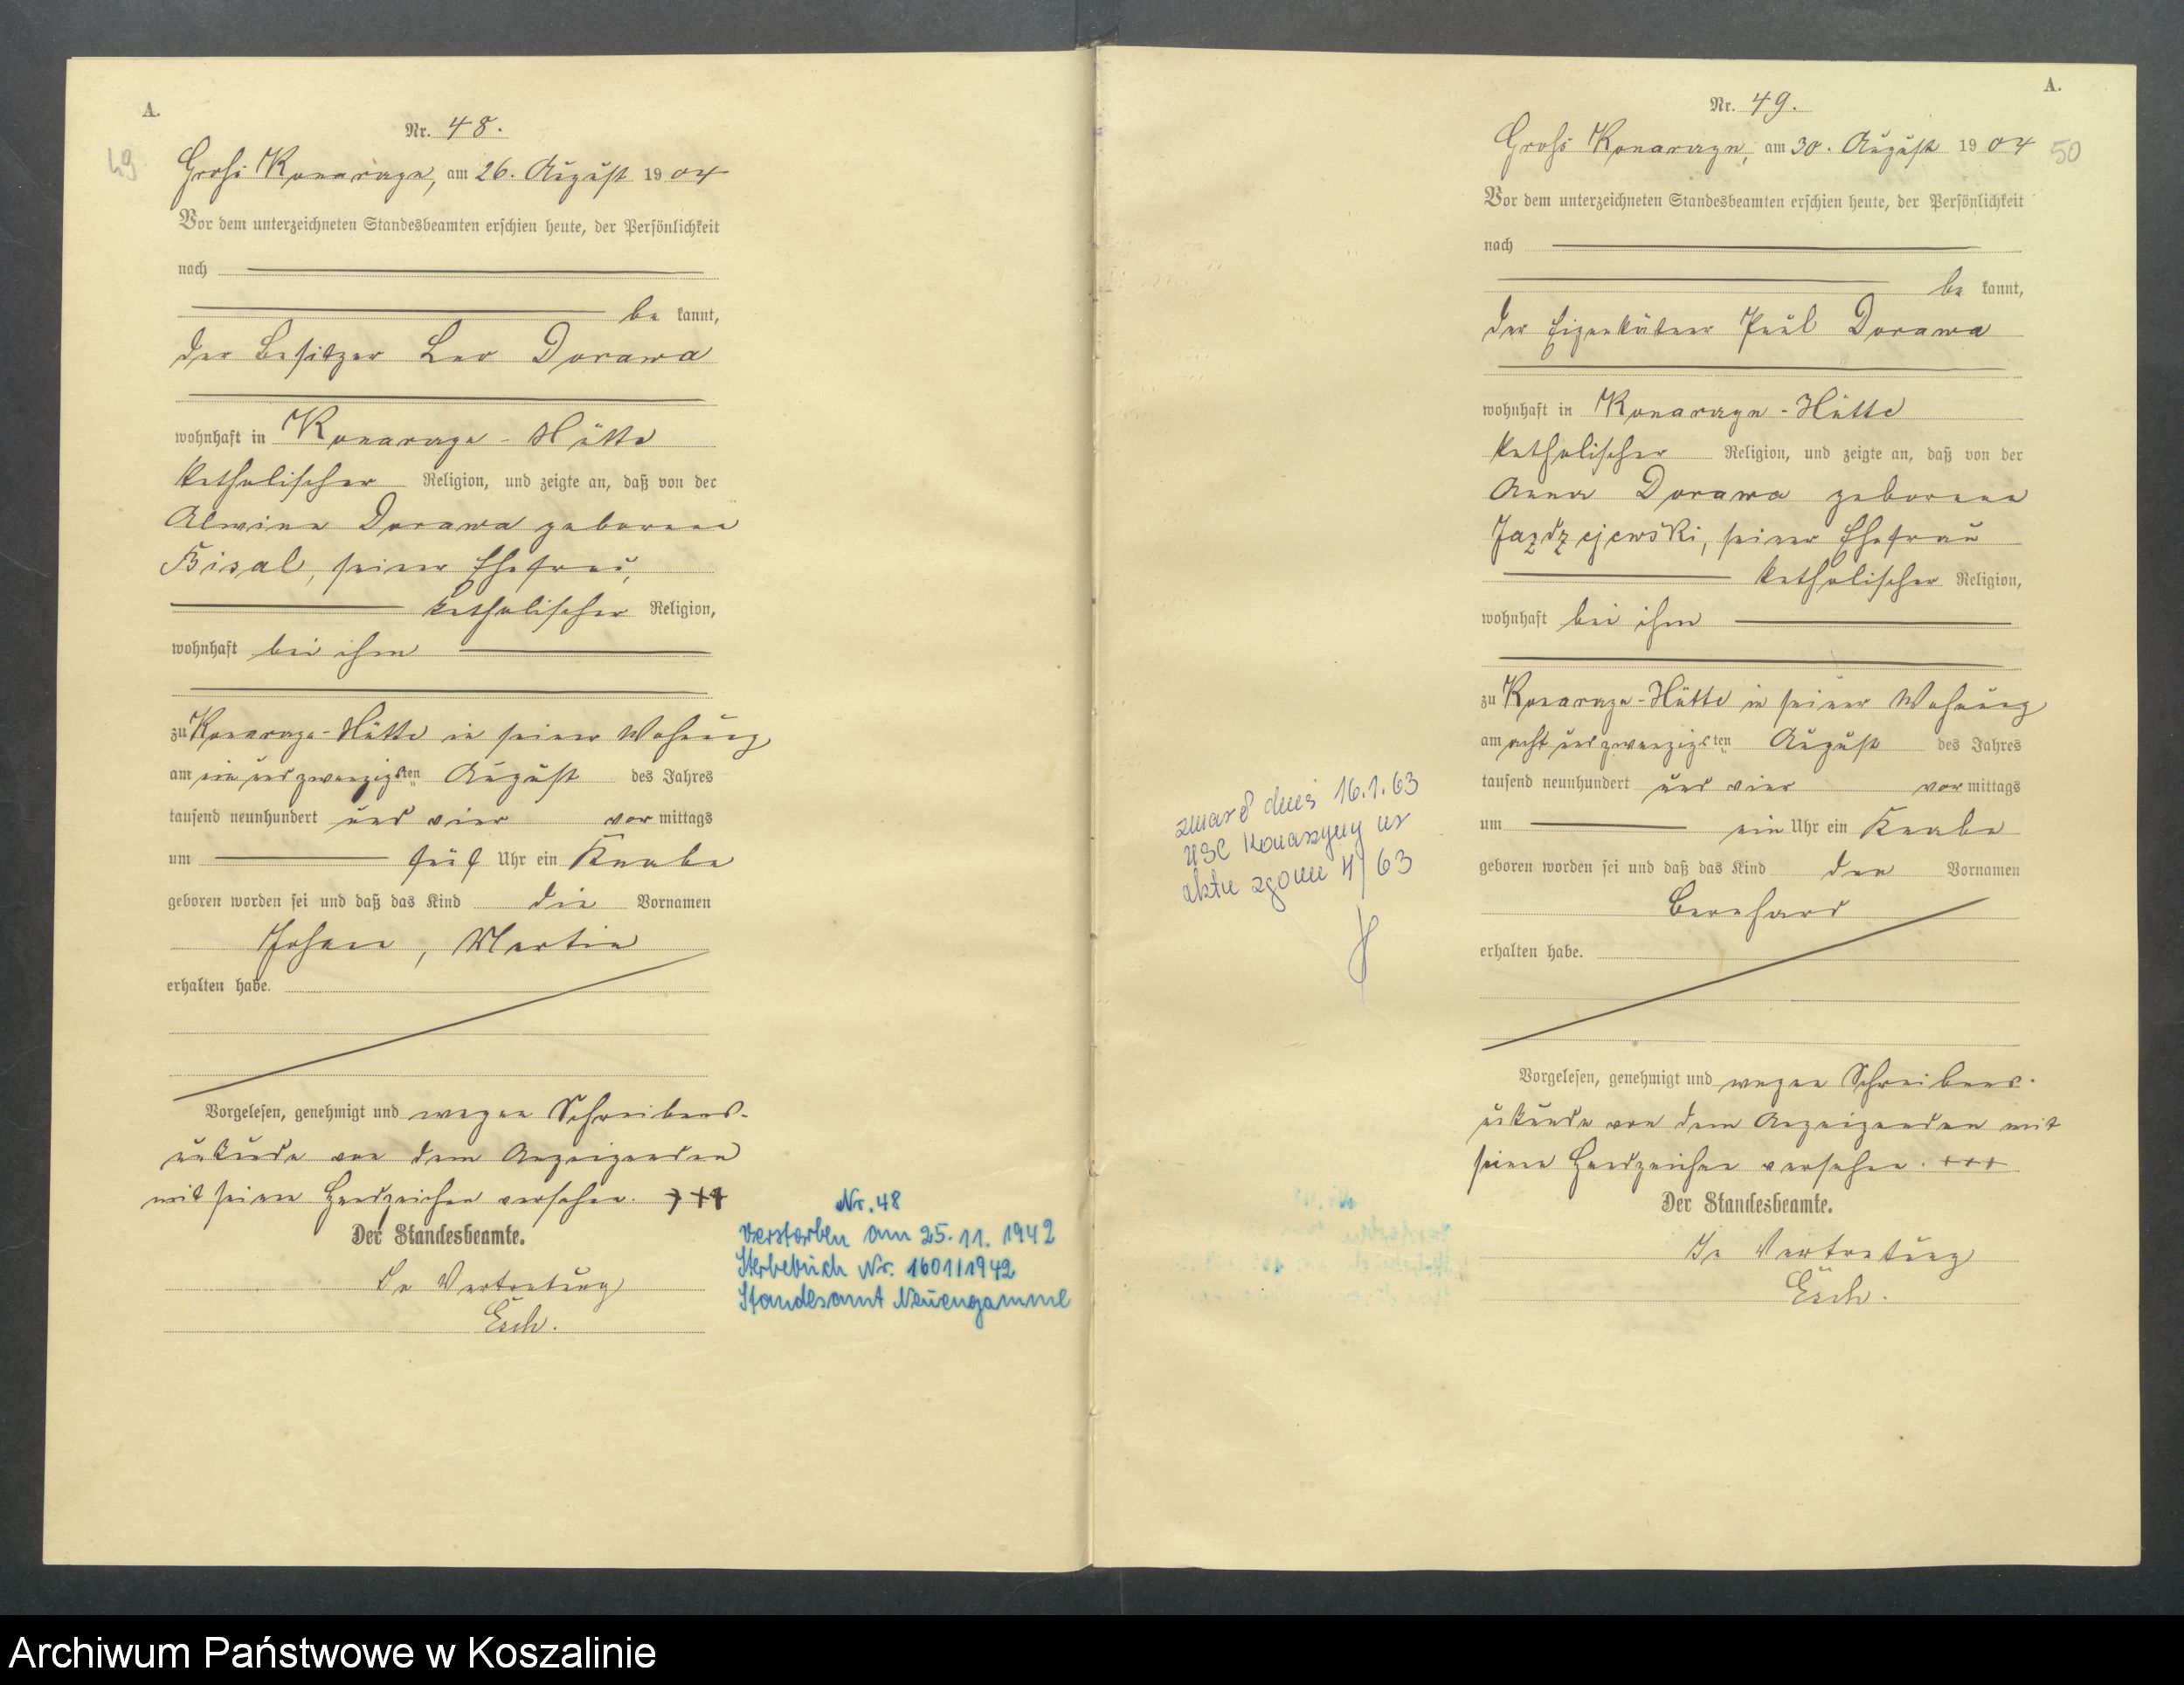 A.
Nr. 48.
49
Groß Konarczyn, am 26. August 1904
Vor dem unterzeichneten Standesbeamten erschien heute, der Persönlichkeit
nach
be kannt,
der Besitzer Leo Dorawa
wohnhaft in Konarczyn-Hütte
katholischer Religion, und zeigte an, daß von der
Alwine Dorawa geborene
Bisal, seiner Ehefrau,
katholischer Religion,
wohnhaft bei ihm
zu Konarczyn-Hütte in seiner Wohnung
am ein und zwanzigsten August des Jahres
tausend neunhundert und vier vor mittags
um fünf Uhr ein Knabe
geboren worden sei und daß das Kind die Vornamen
Johann, Martin
erhalten habe.
Vorgelesen, genehmigt und wegen Schreibens-
unkunde von dem Anzeigenden
mit seinem Handzeichen versehen. +++
Der Standesbeamte.
In Vertretung
Esch.
Nr. 48
verstorben am 25.11.1942
Sterbebuch Nr. 1601/1942
Standesamt Neuengamme
A.
Nr. 49.
Groß Konarczyn, am 30. August 1904
50
Vor dem unterzeichneten Standesbeamten erschien heute, der Persönlichkeit
nach
be kannt,
der Eigenkätner Paul Dorawa
wohnhaft in Konarczyn-Hütte
katholischer Religion, und zeigte an, daß von der
Anna Dorawa geborene
Jazdzejewski, seiner Ehefrau
katholischer Religion,
wohnhaft bei ihm
zu Konarczyn-Hütte in seiner Wohnung
am acht und zwanzigsten August des Jahres
tausend neunhundert und vier vor mittags
um ein Uhr ein Knabe
geboren worden sei und daß das Kind den Vornamen
Bernhard
erhalten habe.
zmarł dnia 16.1.63
USC Konarzyny nr
aktu zgonu 4/63
Vorgelesen, genehmigt und wegen Schreibens-
unkunde von dem Anzeigenden mit
seinem Handzeichen versehen. +++
Der Standesbeamte.
In Vertretung
Esch.
Archiwum Państwowe w Koszalinie